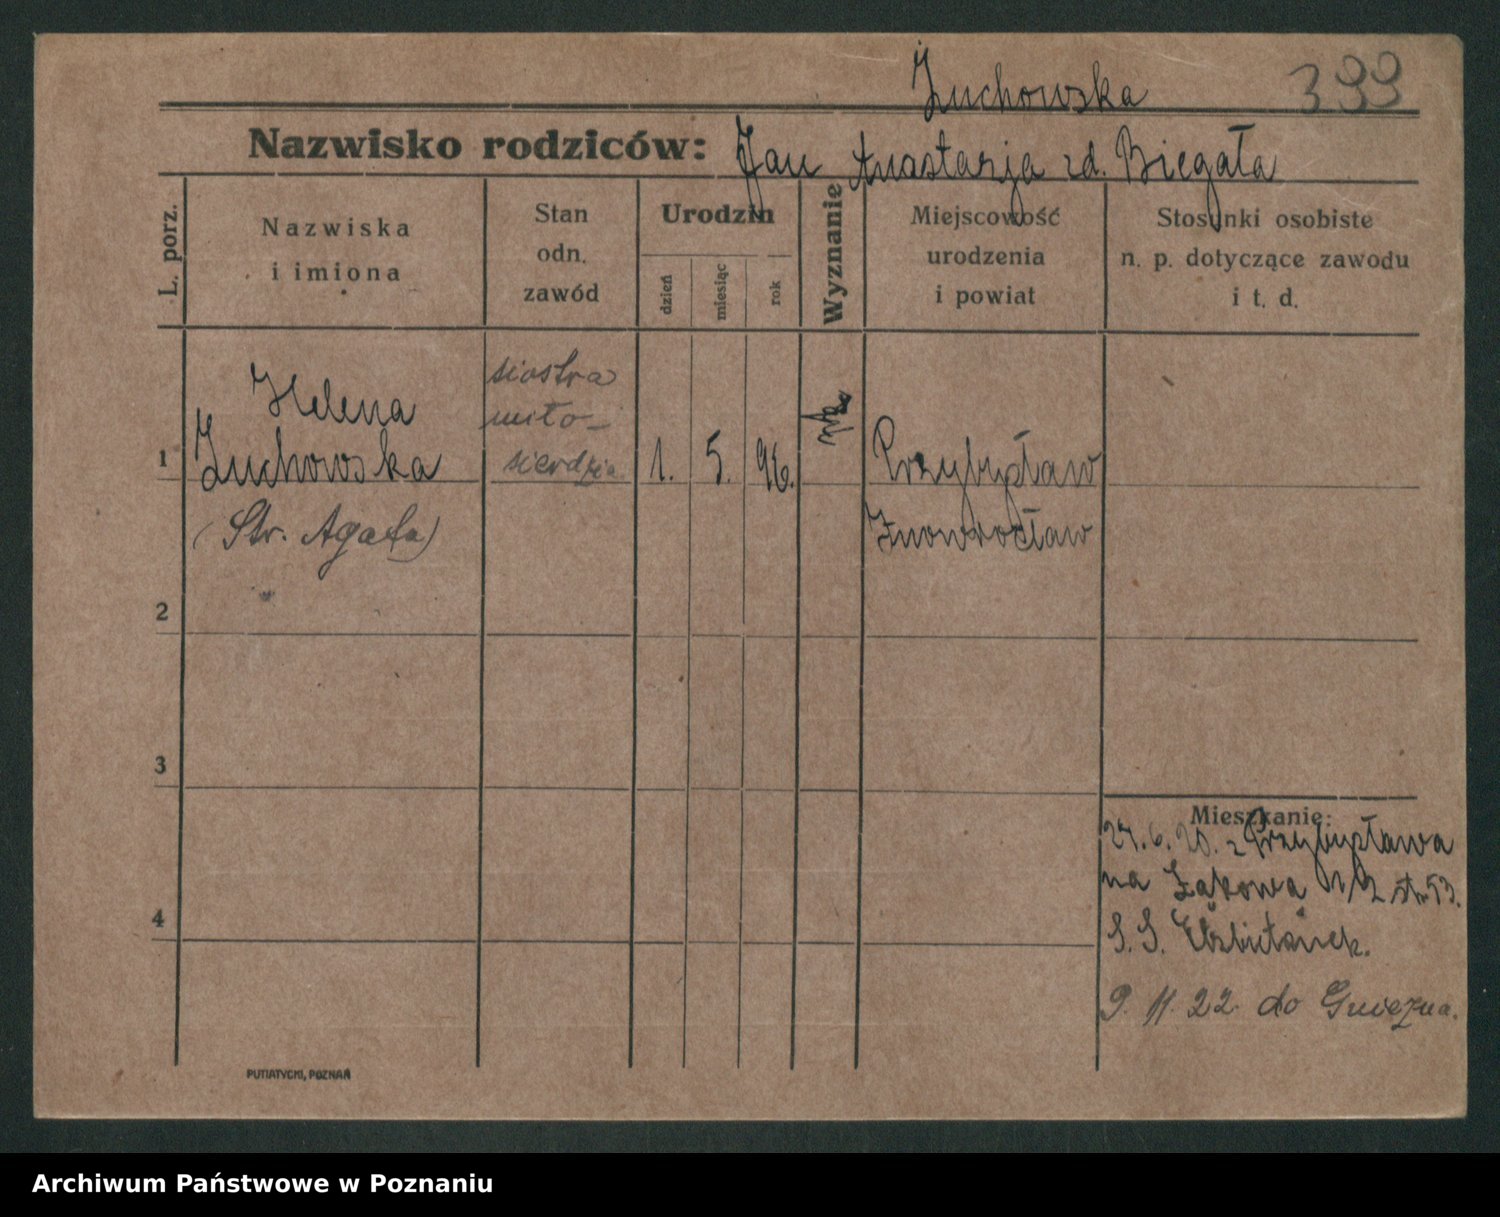 Żuchowska 399
Nazwisko rodziców: Jan Anastazja zd. Biegała
L. porz.
Nazwiska
i imiona
Stan
odn.
zawód
Urodzin
dzień
miesiąc
rok
Wyznanie
Miejscowość
urodzenia
i powiat
Stosunki osobiste
n. p. dotyczące zawodu
i t. d.
1
Helena
Żuchowska
(Str. Agata)
siostra
miło-
sierdzia
1. 5. 96.
rk
Przybysław
Inowrocław
2
3
4
Mieszkanie:
27. 6. 20. z Przybysława
na Łąkowa 1/2 st. 53.
S. S. Elżbietanek.
9. 11. 22. do Gniezna.
PUTIATYCKI, POZNAŃ
Archiwum Państwowe w Poznaniu